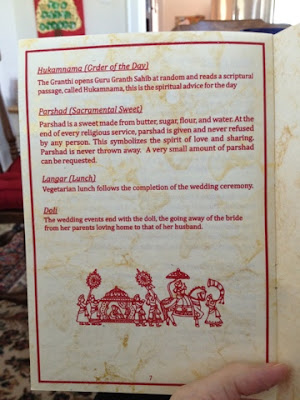 Hukamnama (Order of the Day)
The Granthi opens Guru Granth Sahib at random and reads a scriptural
passage, called Hukamnama, this is the spiritual advice for the day
Parshad (Sacramental Sweet)
Parshad is a sweet made from butter, sugar, flour, and water. At the
end of every religious service, parshad is given and never refused
by any person. This symbolizes the spirit of love and sharing.
Parshad is never thrown away. A very small amount of parshad
can be requested.
Langar (Lunch)
Vegetarian lunch follows the completion of the wedding ceremony.
Doli
The wedding events end with the doli, the going away of the bride
from her parents loving home to that of her husband.
7